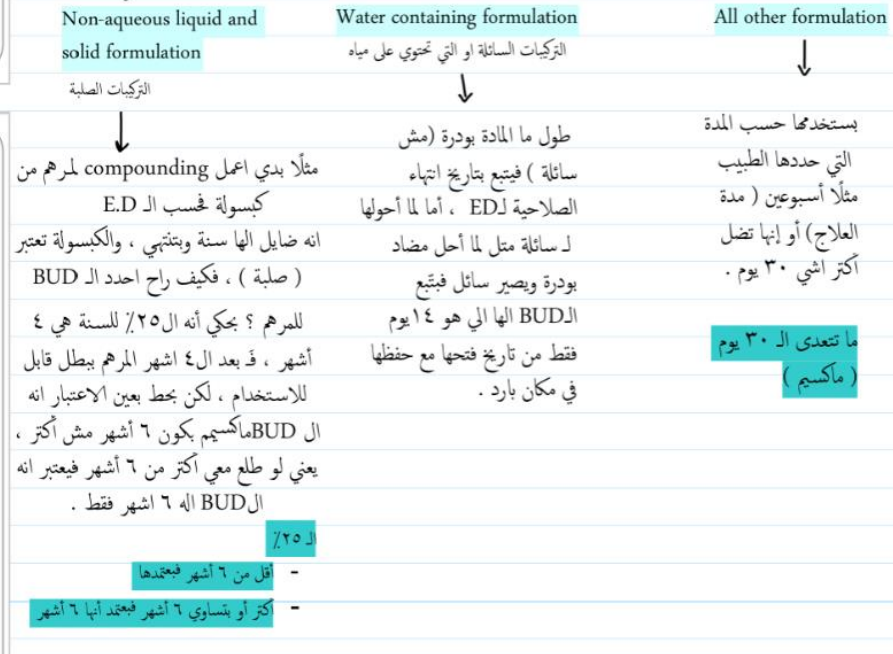 Non-aqueous liquid and
solid formulation
التركيبات الصلبة
مثلًا بدي اعمل compounding لمرهم من
كبسولة فحسب الـ E.D
انه ضايل الها سنة وبتنتهي ، والكبسولة تعتبر
( صلبة ) ، فكيف راح احدد الـ BUD
للمرهم ؟ بحكي أنه ال٢٥٪ للسنة هي ٤
أشهر ، فَـ بعد ال٤ اشهر المرهم ببطل قابل
للاستخدام ، لكن بحط بعين الاعتبار انه
ال BUDماكسيمم بكون ٦ أشهر مش أكتر ،
يعني لو طلع معي أكتر من ٦ أشهر فيعتبر انه
الـBUD اله ٦ اشهر فقط .
الـ ٢٥٪
- أقل من ٦ أشهر فبعتمدها
- أكتر أو بتساوي ٦ أشهر فبعتمد أنها ٦ أشهر
Water containing formulation
التركيبات السائلة او التي تحتوي على مياه
طول ما المادة بودرة (مش
سائلة ) فيتبع بتاريخ انتهاء
الصلاحية لـED ، أما لما أحولها
لـ سائلة متل لما أحل مضاد
بودرة ويصير سائل فبتّبع
الـBUD الها الي هو ١٤يوم
فقط من تاريخ فتحها مع حفظها
في مكان بارد .
All other formulation
بستخدمها حسب المدة
التي حددها الطبيب
مثلًا أسبوعين ( مدة
العلاج) أو إنها تضل
أكتر اشي ٣٠ يوم .
ما تتعدى الـ ٣٠ يوم
( ماكسيم )